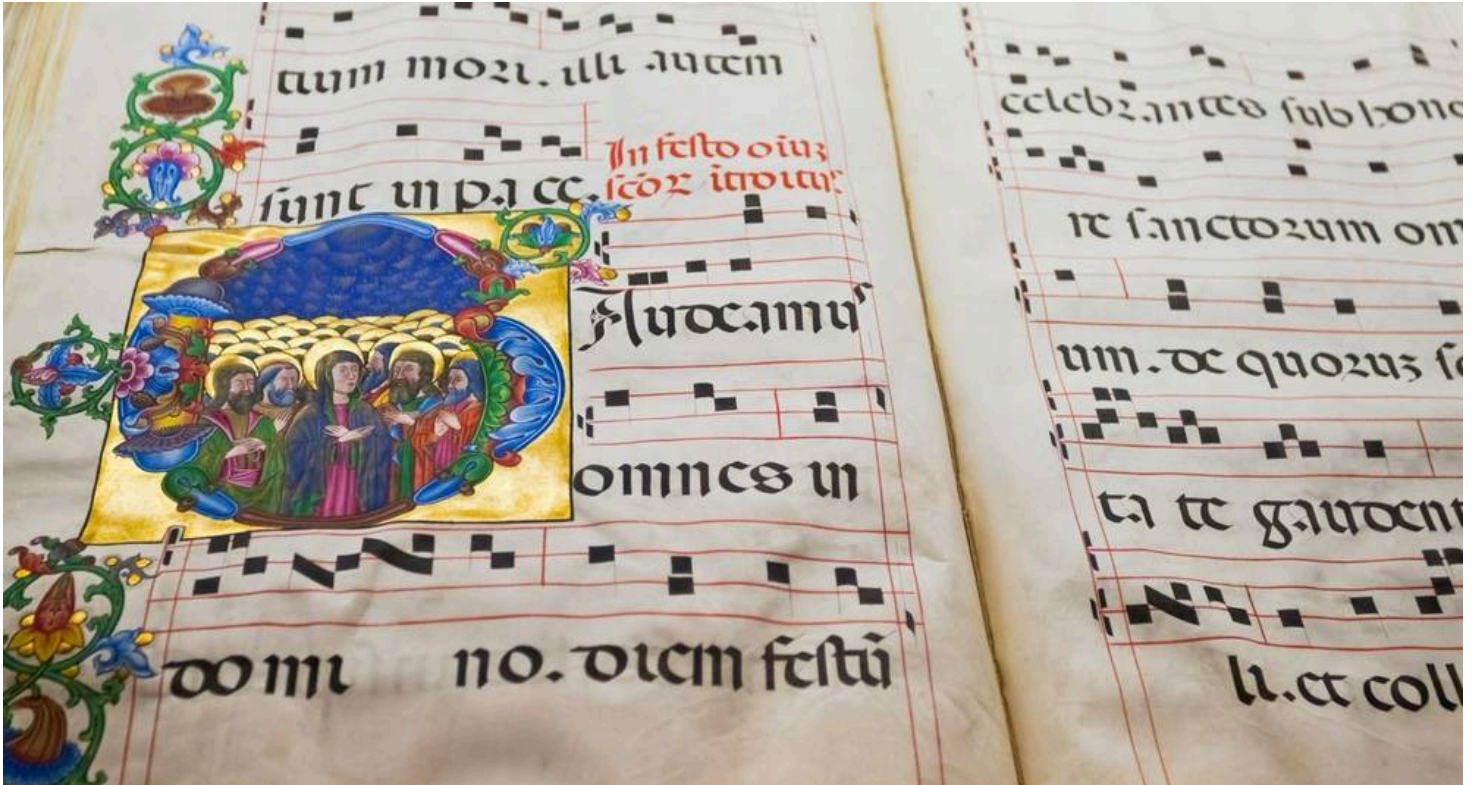 tium mori. illi autem
sunt in pa ce.
In festo oiuʒ
scõꝝ ĩtroitus
Audeamus
omnes in
domi no. diem festũ
celebrantes sub hono
re sanctorum om
um. de quoruʒ so
ta te gaudent
li. et coll